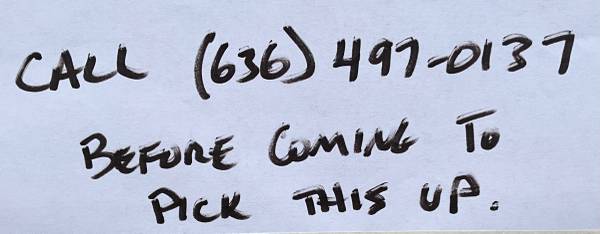 CALL (636) 497-0137
BEFORE COMING TO
PICK THIS UP.